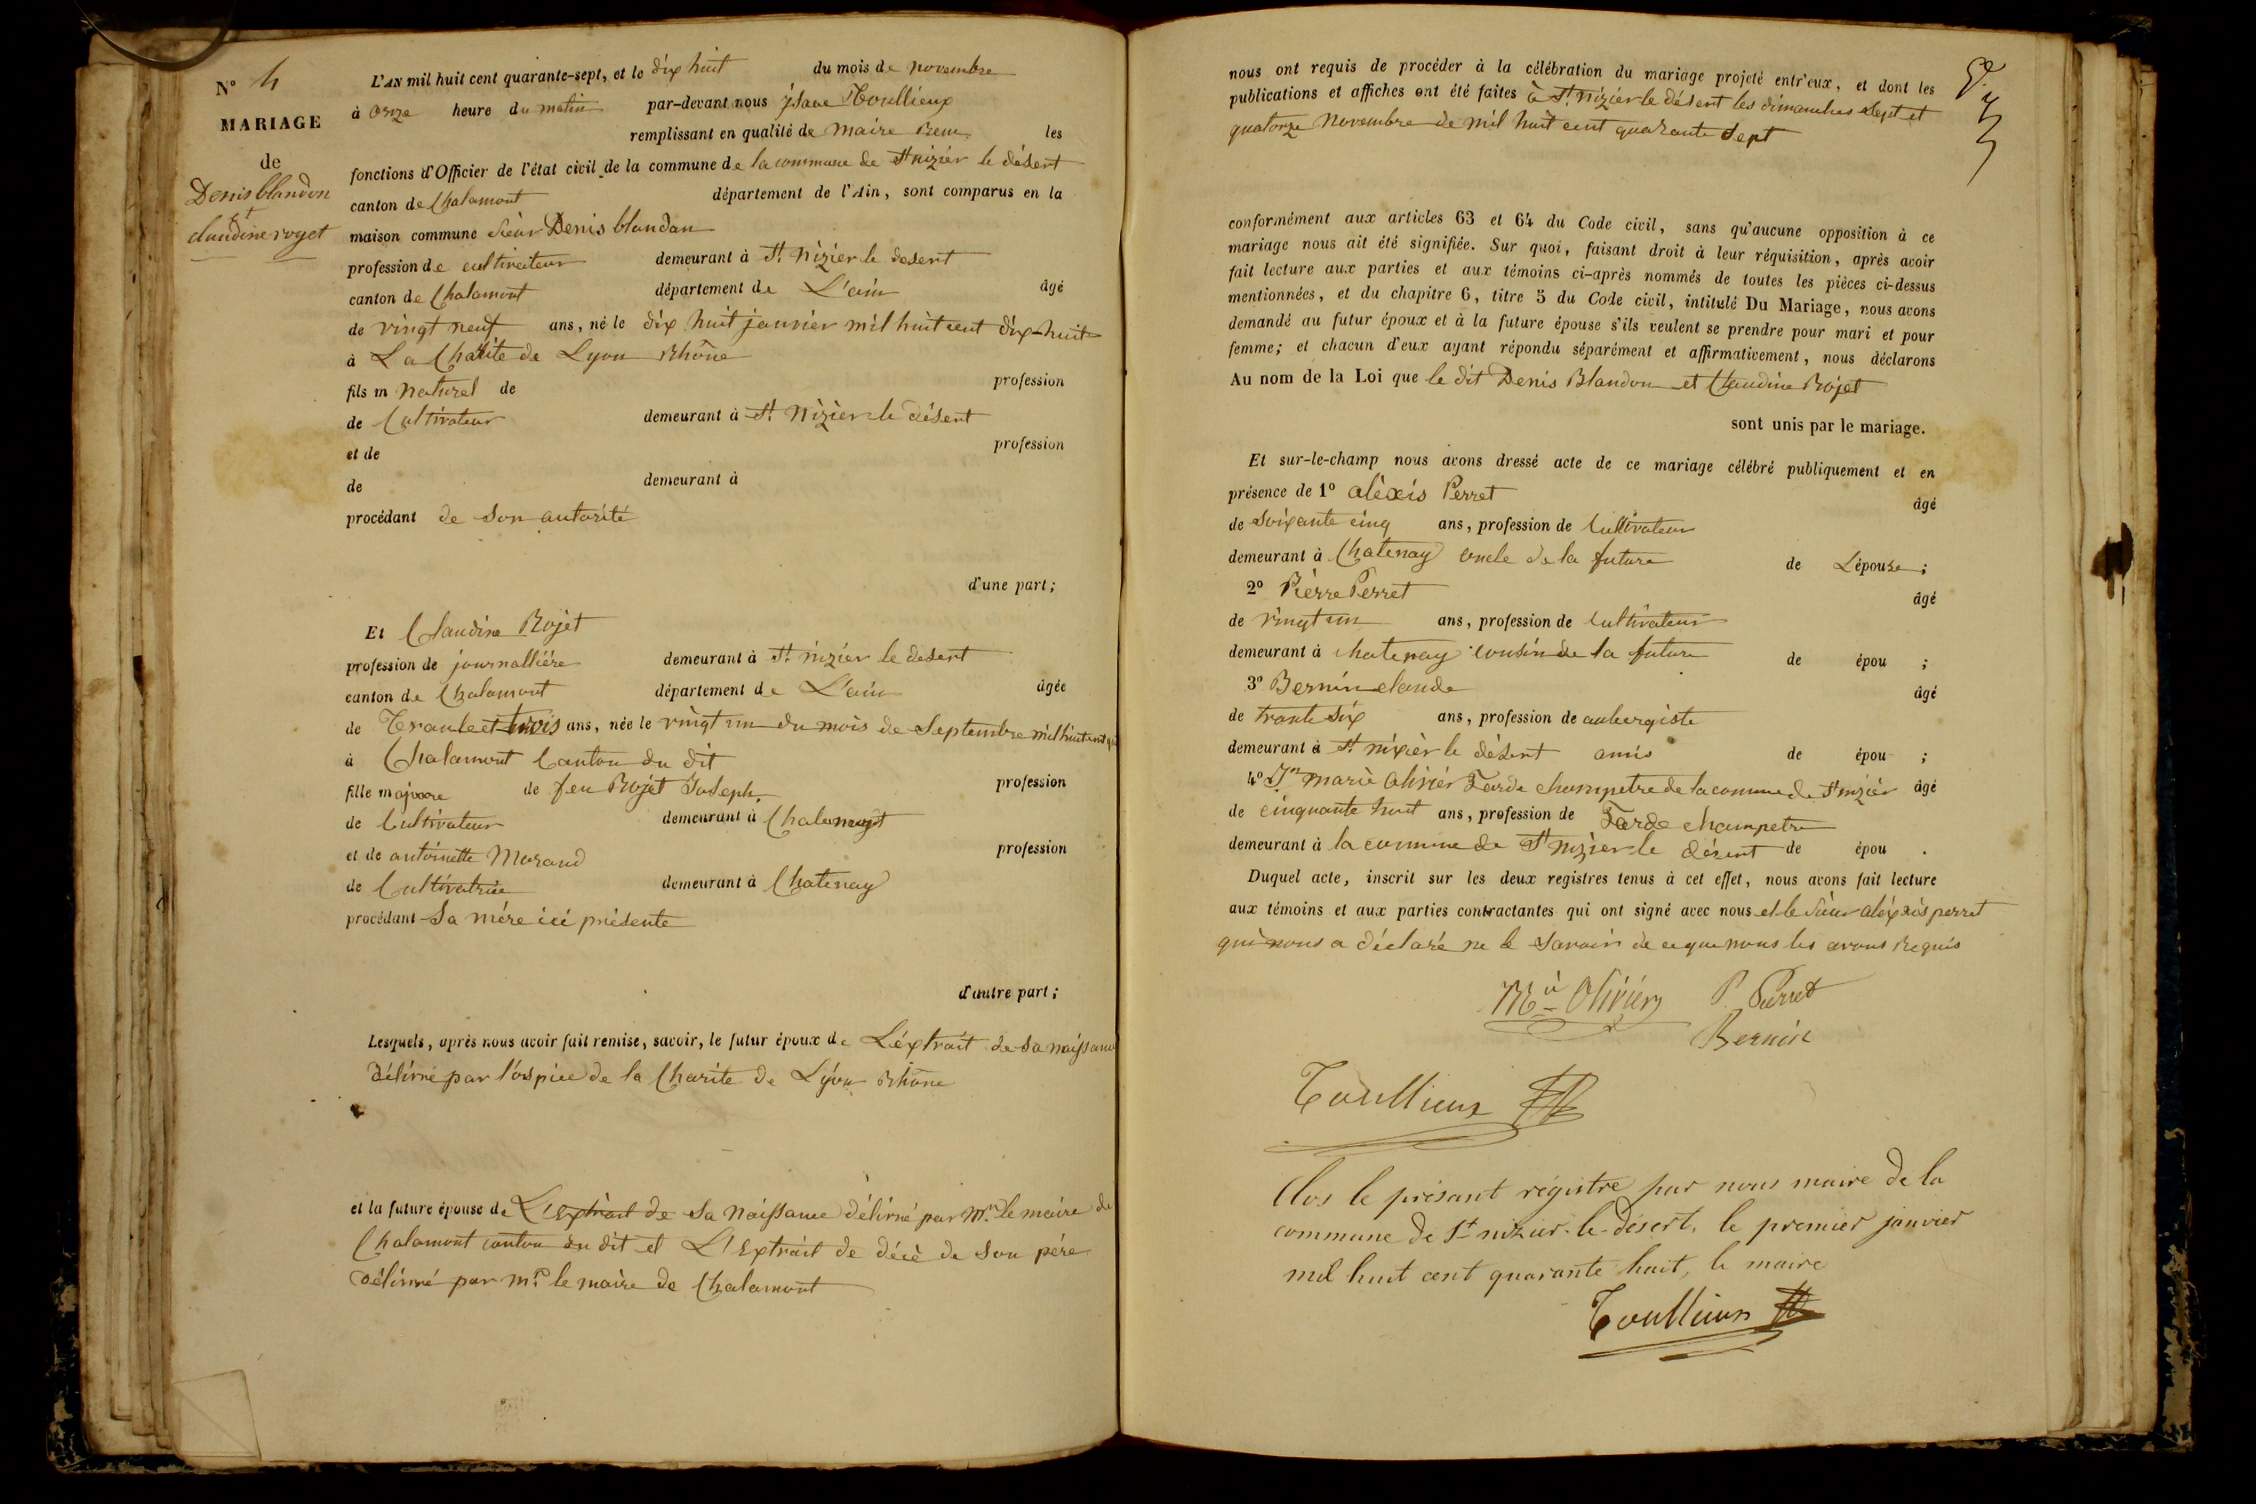 N° 4
MARIAGE
de
Denis blandon
et
claudine roget
L'AN mil huit cent quarante-sept, et le dix huit du mois de novembre
à onze heure du matin par-devant nous ysaac Toullieux
remplissant en qualité de maire les
fonctions d'Officier de l'état civil de la commune de la commune de St nizier le désert
canton de Chalamont département de l'Ain, sont comparus en la
maison commune Sieur Denis blandon
profession de cultivateur demeurant à St. Nizier le desert
canton de Chalamont département de L'ain âgé
de vingt neuf ans, né le dix huit janvier mil huit cent dix-huit
à La Charité de Lyon Rhône
fils m naturel de profession
de Cultivateur demeurant à St. Nizier le désert
et de profession
de demeurant à
procédant de son autorité
d'une part;
Et Claudine Rojet
profession de journallière demeurant à St. nizier le desert
canton de Chalamont département de L'ain âgée
de Trante et trois ans, née le vingt un du mois de Septembre mil huit cent
à Chalamont Canton du dit
fille majeure de feu Rojet Joseph profession
de Cultivateur demeurant à Chalamont
et de antoinette Morand profession
de Cultivatrice demeurant à Chatenay
procédant Sa mére ici présente
d'autre part;
Lesquels, après nous avoir fait remise, savoir, le futur époux de L'éxtrait de sa naissance
délivré par l'ospice de la Charité de Lyon Rhône
et la future épouse de L'Extrait de sa Naissance délivré par Mr. le maire de
Chalamont canton du dit et L'Extrait de décè de son pére
délivré par mr. le maire de Chalamont
nous ont requis de procéder à la célébration du mariage projeté entr'eux, et dont les
publications et affiches ont été faites à St. nizier le désert les dimanches sept et
quatorze Novembre de mil huit cent quarante sept
conformément aux articles 63 et 64 du Code civil, sans qu'aucune opposition à ce
mariage nous ait été signifiée. Sur quoi, faisant droit à leur réquisition, après avoir
fait lecture aux parties et aux témoins ci-après nommés de toutes les pièces ci-dessus
mentionnées, et du chapitre 6, titre 5 du Code civil, intitulé Du Mariage, nous avons
demandé au futur époux et à la future épouse s'ils veulent se prendre pour mari et pour
femme; et chacun d'eux ayant répondu séparément et affirmativement, nous déclarons
Au nom de la Loi que le dit Denis Blandon et Claudine Rojet
sont unis par le mariage.
Et sur-le-champ nous avons dressé acte de ce mariage célébré publiquement et en
présence de 1° aléxis Perret âgé
de soixante cinq ans, profession de Cultivateur
demeurant à Chatenay oncle de la future de L'épouse;
2° Pièrre Perret âgé
de vingt un ans, profession de Cultivateur
demeurant à chatenay cousin de la future de épou ;
3° Bernin claude âgé
de trante six ans, profession de aubergiste
demeurant à St. nizièr le désert amis de épou ;
4° Jn marie Olivièr Garde champetre de la commune de St nizièr âgé
de cinquante huit ans, profession de Garde champetre
demeurant à la commune de St nizier le désert de épou .
Duquel acte, inscrit sur les deux registres tenus à cet effet, nous avons fait lecture
aux témoins et aux parties contractantes qui ont signé avec nous et le sieur aléxis perret
qui nous a déclaré ne le savoir de ce que nous les avons Requis
Mie Olivier P. Perret
Bernin
Toullieux
Clos le présant régistre par nous maire de la
commune de St nizier-le-désert, le premier janvier
mil huit cent quarante huit, le maire
Toullieux